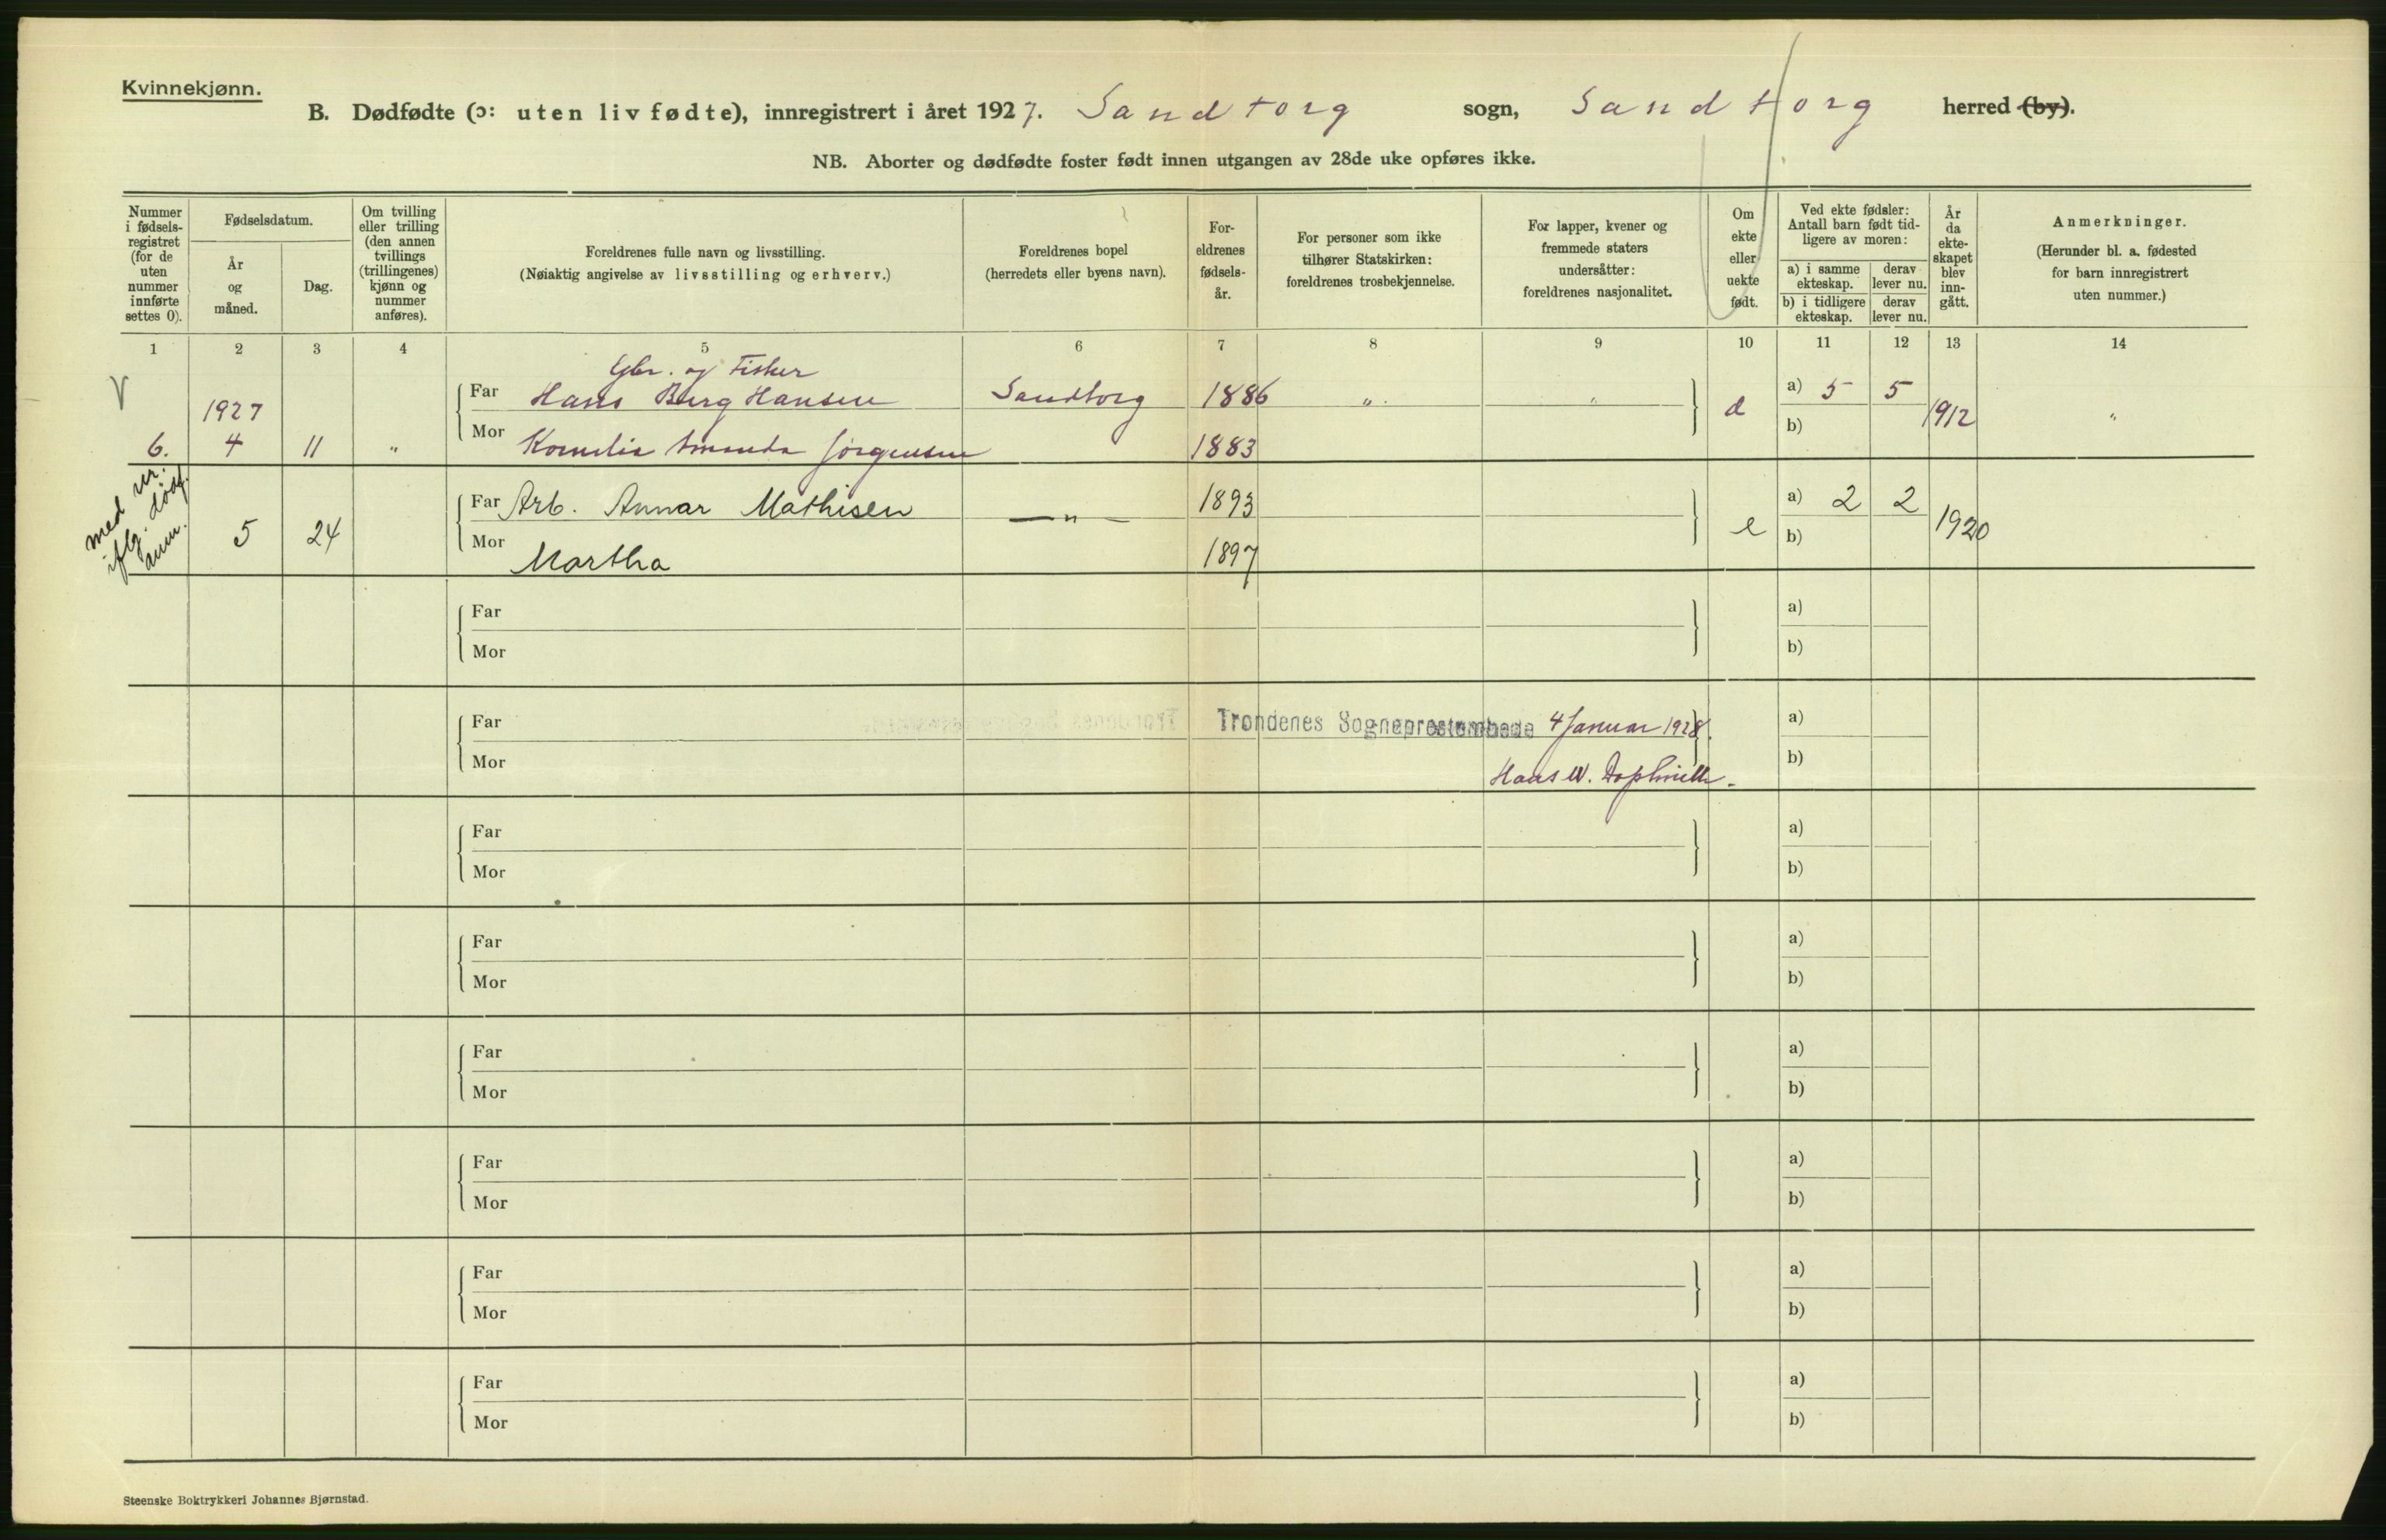 Kvinnekjønn.
B. Dødfødte (ɔ: uten liv fødte), innregistrert i året 1927. Sandtorg sogn, Sandtorg herred (by).
NB. Aborter og dødfødte foster født innen utgangen av 28de uke opføres ikke.
Nummer i fødsels-registret (for de uten nummer innførte settes 0).
Fødselsdatum.
År og måned.
Dag.
Om tvilling eller trilling (den annen tvillings (trillingenes) kjønn og nummer anføres).
Foreldrenes fulle navn og livsstilling.
(Nøiaktig angivelse av livsstilling og erhverv.)
Foreldrenes bopel
(herredets eller byens navn).
For-eldrenes fødsels-år.
For personer som ikke tilhører Statskirken: foreldrenes trosbekjennelse.
For lapper, kvener og fremmede staters undersåtter: foreldrenes nasjonalitet.
Om ekte eller uekte født.
Ved ekte fødsler: Antall barn født tid-ligere av moren:
a) i samme ekteskap.
derav lever nu.
b) i tidligere ekteskap.
derav lever nu.
År da ekte-skapet blev inn-gått.
Anmerkninger.
(Herunder bl. a. fødested for barn innregistrert uten nummer.)
1 2 3 4 5 6 7 8 9 10 11 12 13 14
V
Gbr. og Fisker
Far Hans Berg Hansen Sandtorg 1886 " " a) 5 5
1927 1912 "
6. 4 11 " Mor Kornelia Amanda Jørgensen 1883 b)
med nr.
iflg. dødf.
num.
Far Arb. Annar Mathisen — " — 1893 a) 2 2
5 24 e 1920
Mor Martha 1897 b)
Far a)
Mor b)
Far Trondenes Sogneprestembede 4 Januar 1928. a)
Mor Hans W. b)
Far a)
Mor b)
Far a)
Mor b)
Far a)
Mor b)
Far a)
Mor b)
Far a)
Mor b)
Far a)
Mor b)
Steenske Boktrykkeri Johannes Bjørnstad.